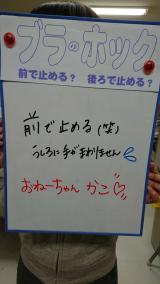 ブラのホック
前で止める？ 後ろで止める？
前で止める(笑)
うしろに手がまわりません
おねーちゃん かこ♡